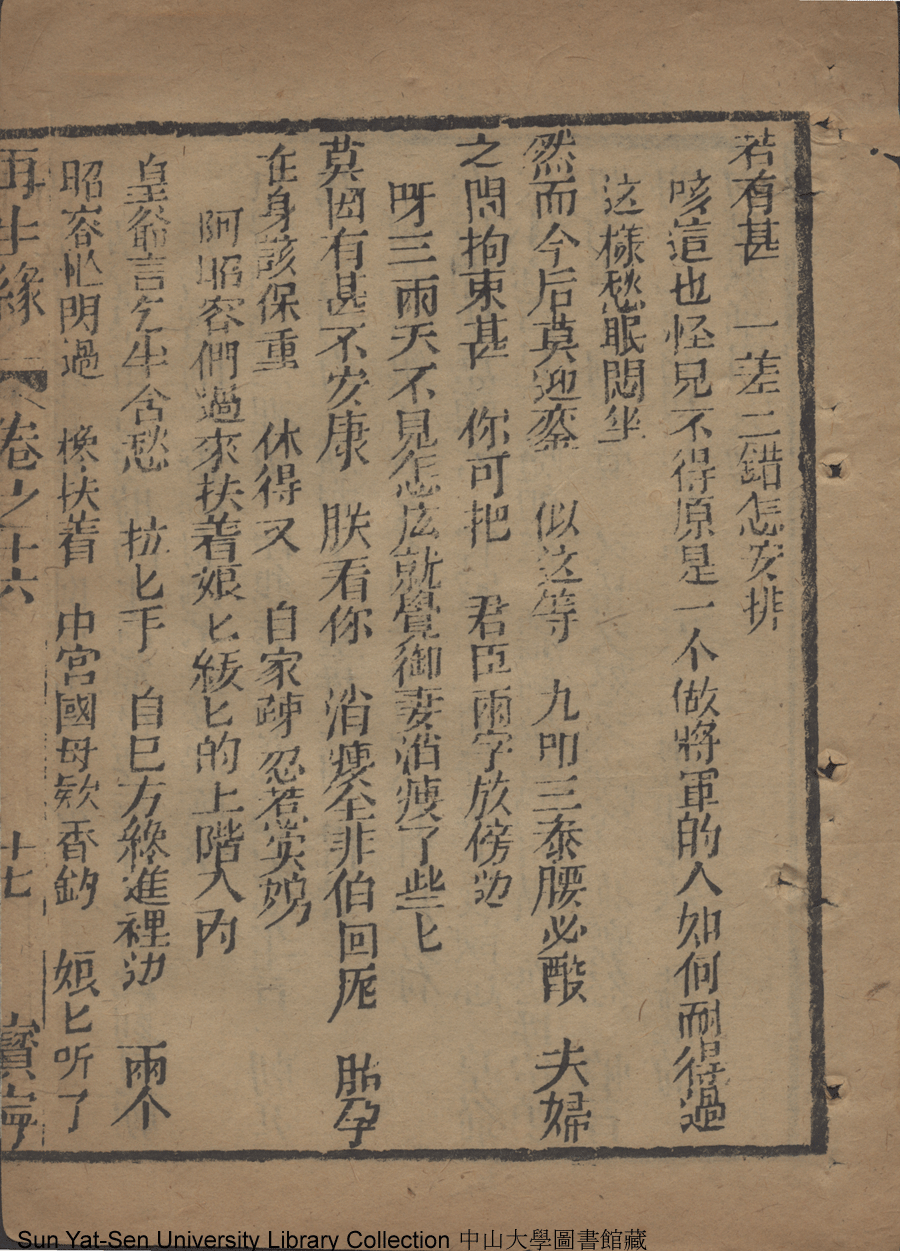 若有甚　一差二錯怎安排
咳這也怪見不得原是一个做將軍的人如何耐得過
这樣愁眠悶坐
然而今后莫迎鑾　似这等　九叩三泰腰必酸　夫婦
之間拘束甚　你可把　君臣兩字放傍边
呀三兩天不見怎広就覺御妻消瘦了些匕
莫因有甚不安康　朕看你　消瘦全非伯回厐　胎孕
在身該保重　休得又　自家疎忍惹災
阿昭容們過來扶着娘匕緩匕的上階入內
皇爺言乞半含愁　拉匕手　自巳方綠進裡边　兩个
昭容忙閃過　攙扶着　中宮國母欵香鈎　娘匕听了
再生緣　卷之十六　十七　寶寧
Sun Yat-Sen University Library Collection 中山大學圖書館藏